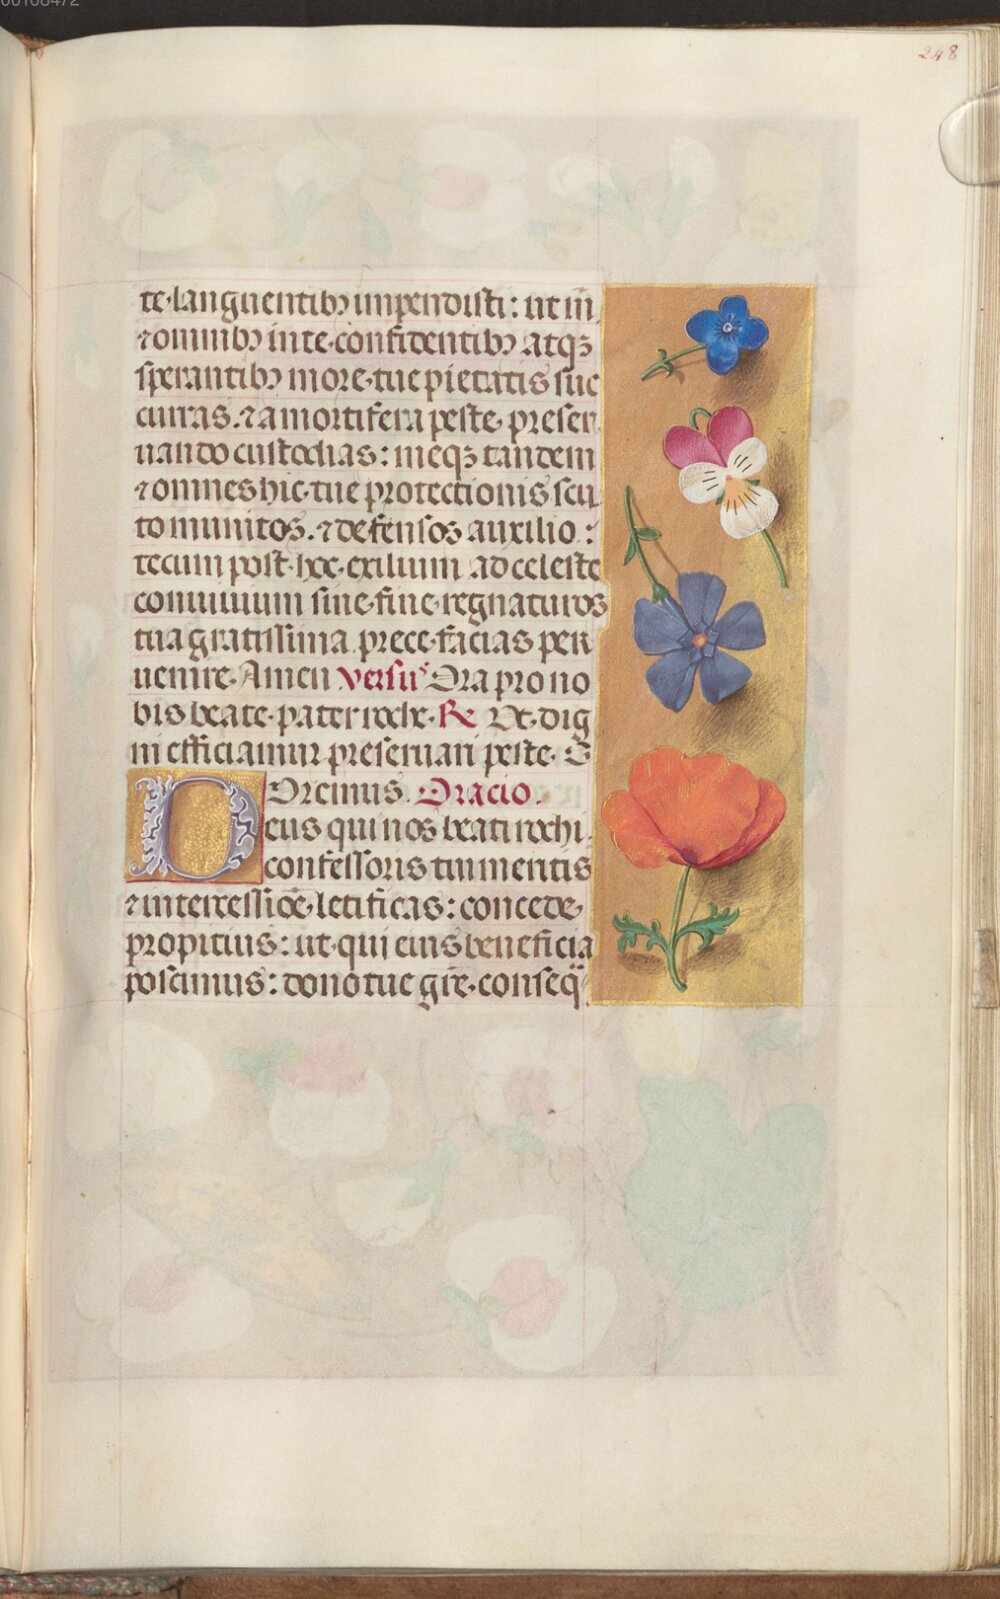 00108472
248
te languentibꝰ impendisti: ut m̄
⁊ omnibꝰ in te confidentibꝰ atqꝫ
sperantibꝰ more tue pietatis suc
curras. ⁊ a mortifera peste preser
uando custodias: meqꝫ tandem
⁊ omnes hic tue protectionis scu
to munitos. ⁊ defensos auxilio:
tecum post hoc exilium ad celeste
conuiuium sine fine regnaturos
tua gratissima prece facias per
uenire. Amen versus Ora pro no
bis beate pater roche. ℟ Ut dig
ni efficiamur preseruari peste. O
Oremus. Oracio.
Deus qui nos beati rochi
confessoris tui mentis
⁊ intercessiōe letificas: concede
propitius: ut qui eius beneficia
poscimus: dono tue gr̄e conseq̄